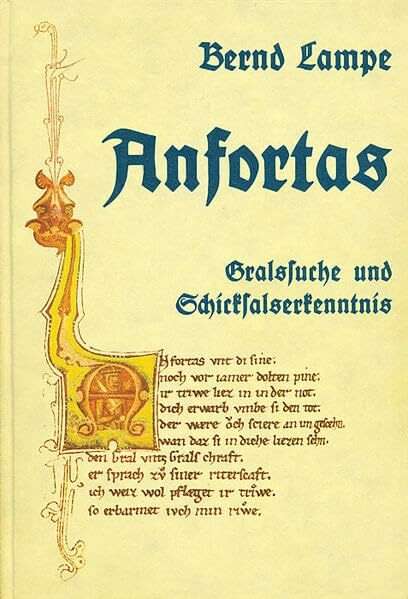 Bernd Lampe
Anfortas
Gralsſuche und
Schickſalserkenntnis
Anfortas vnt di sine:
noch vor iamer dolten pine:
ir triwe liez in in der not.
dich erwarb vmbe si den tot:
der were ǒch sciere an un gescehn.
wan daz si in diche liezen sehn.
den Gral vnt Grals chraft.
er sprach zv̊ siner riterscaft.
ich weiz wol pflæget ir triwe.
so erbarmet ivch min riwe.